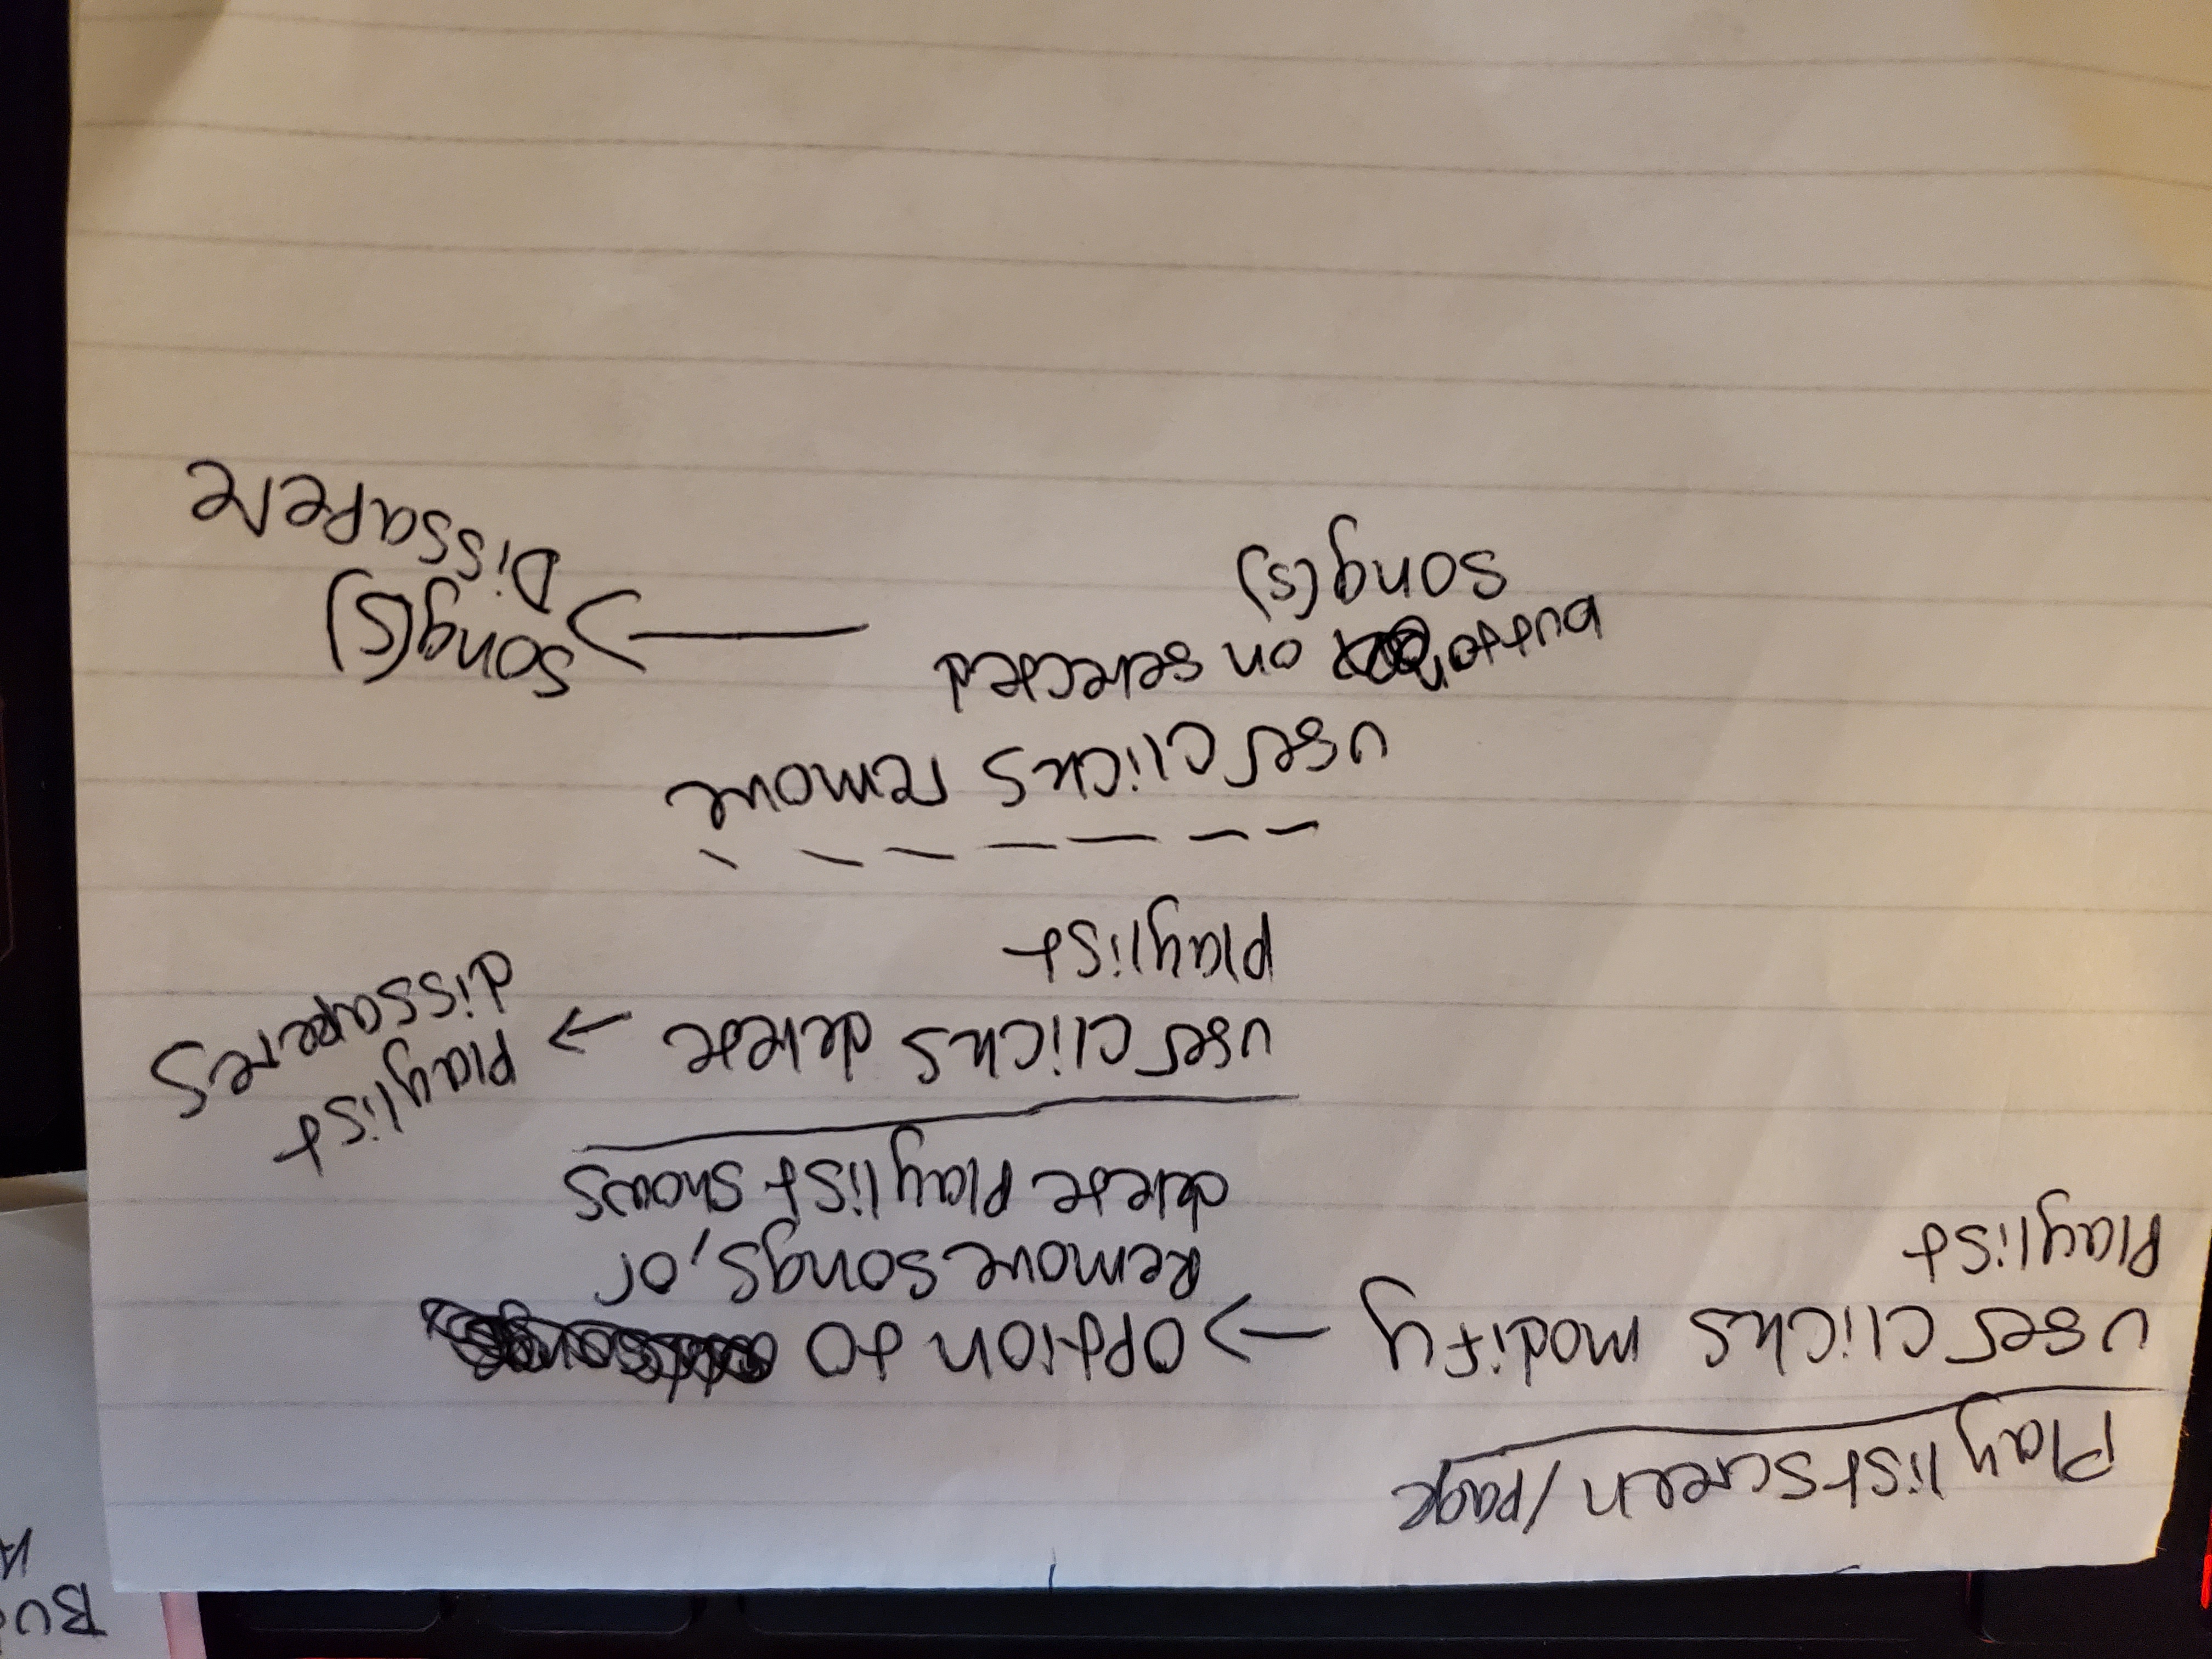 Playlist screen/page
user clicks modify → option to
Playlist
Remove songs, or
delete Playlist shows
user clicks delete → Playlist
dissaperes
playlist
user clicks remove
button on selected → song(s)
song(s)
Dissapere
BU